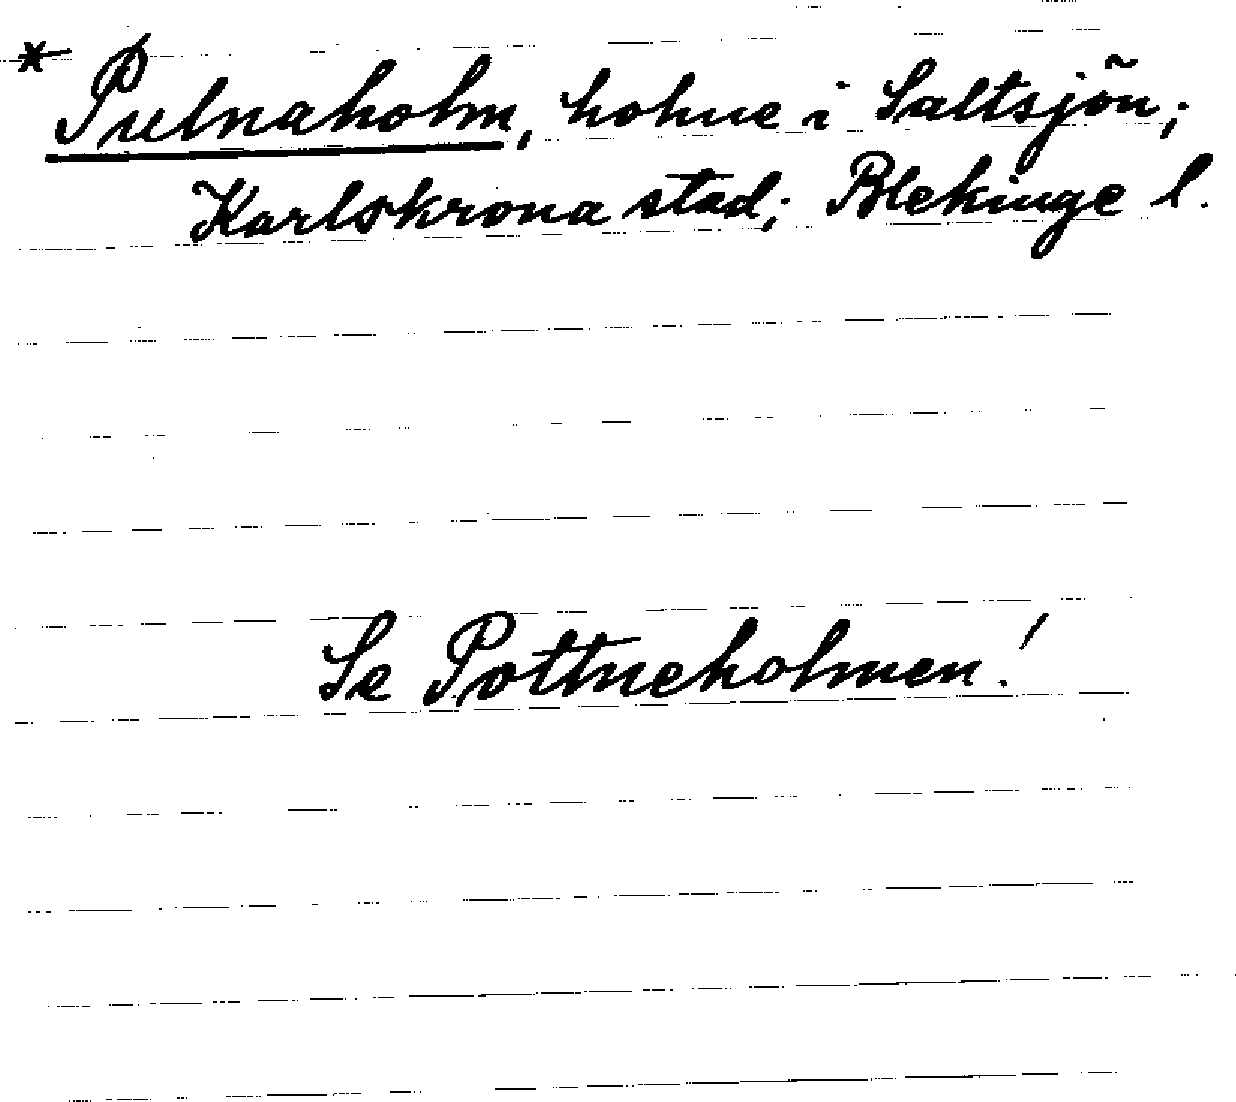 * Pulnaholm, holme i Saltsjön;
Karlskrona stad; Blekinge l.
Se Pottneholmen!